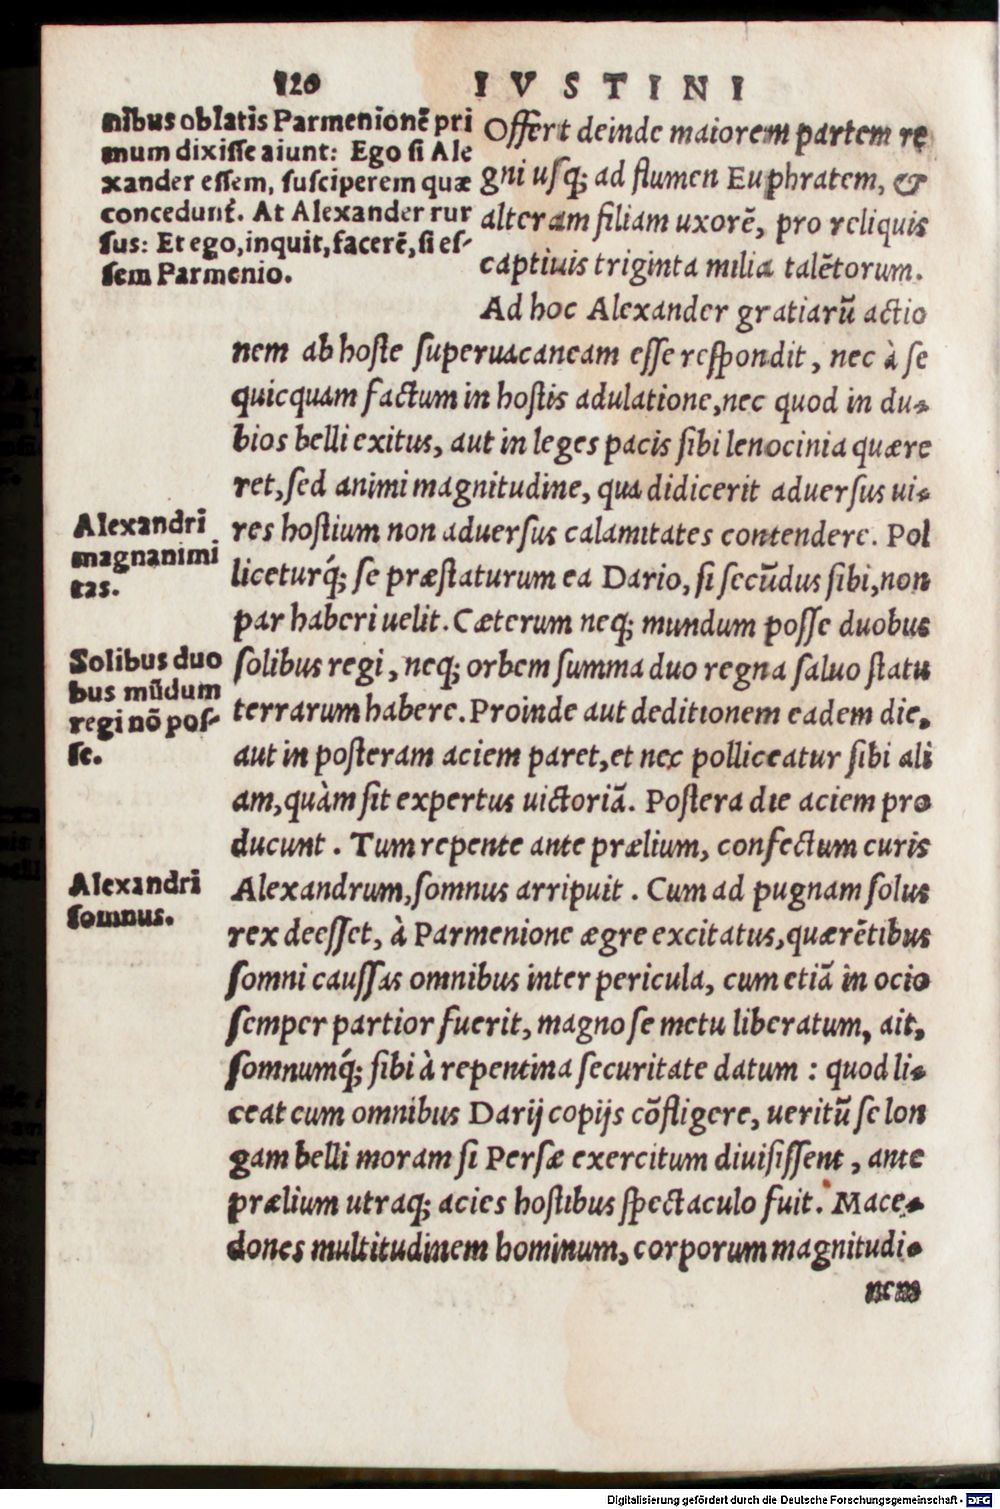 120
IVSTINI
nibus oblatis Parmenionē pri
mum dixisse aiunt: Ego si Ale
xander essem, susciperem quæ
concedunt. At Alexander rur
sus: Et ego, inquit, facerē, si es-
sem Parmenio.
Offert deinde maiorem partem re
gni usq; ad flumen Euphratem, &
alteram filiam uxorē, pro reliquis
captiuis triginta milia talētorum.
Ad hoc Alexander gratiarū actio
nem ab hoste superuacaneam esse respondit, nec à se
quicquam factum in hostis adulatione, nec quod in du-
bios belli exitus, aut in leges pacis sibi lenocinia quære
ret, sed animi magnitudine, qua didicerit aduersus ui-
res hostium non aduersus calamitates contendere. Pol
liceturq́; se præstaturum ea Dario, si secūdus sibi, non
par haberi uelit. Cæterum neq; mundum posse duobus
solibus regi, neq; orbem summa duo regna saluo statu
terrarum habere. Proinde aut deditionem eadem die,
aut in posteram aciem paret, et nec polliceatur sibi ali
am, quàm sit expertus uictoriā. Postera die aciem pro
ducunt. Tum repente ante prælium, confectum curis
Alexandrum, somnus arripuit. Cum ad pugnam solus
rex deesset, à Parmenione ægre excitatus, quærētibus
somni caussas omnibus inter pericula, cum etiā in ocio
semper partior fuerit, magno se metu liberatum, ait,
somnumq́; sibi à repentina securitate datum : quod li-
ceat cum omnibus Darij copijs cōfligere, ueritū se lon
gam belli moram si Persæ exercitum diuisissent, ante
prælium utraq; acies hostibus spectaculo fuit. Mace-
dones multitudinem hominum, corporum magnitudi-
nem
Alexandri
magnanimi
tas.
Solibus duo
bus mūdum
regi nō pos-
se.
Alexandri
somnus.
Digitalisierung gefördert durch die Deutsche Forschungsgemeinschaft - DFG